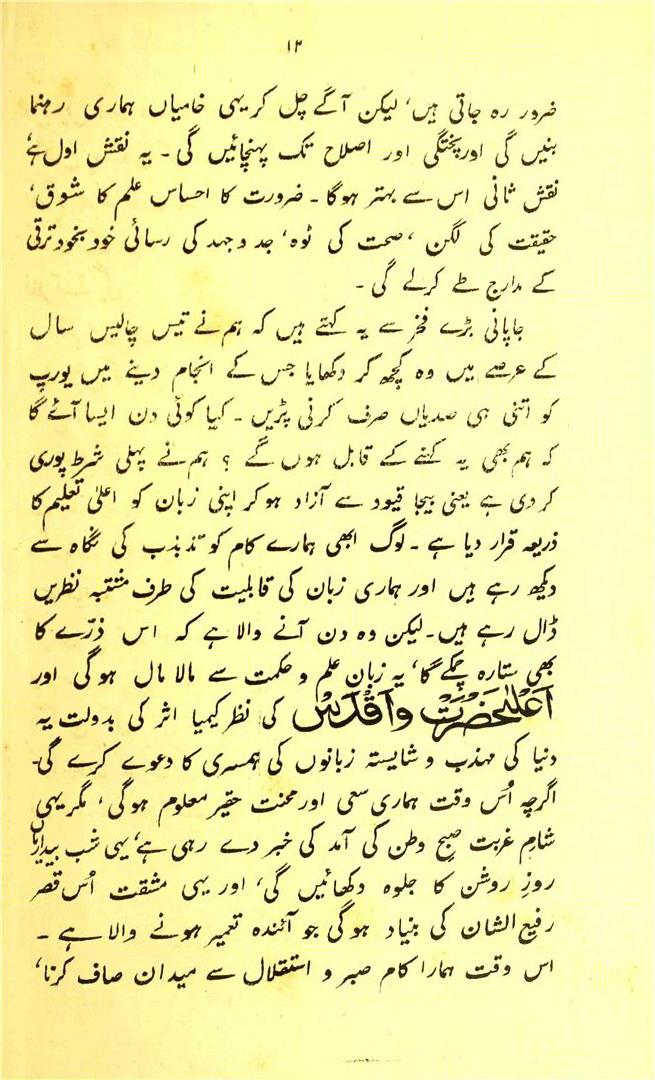 ۱۳
ضرور رہ جاتی ہیں، لیکن آگے چل کر یہی خامیاں ہماری رہنما
بنیں گی اور پختگی اور اصلاح تک پہنچائیں گی۔ یہ نقش اول ہے،
نقش ثانی اس سے بہتر ہوگا۔ ضرورت کا احساس علم کا شوق،
حقیقت کی لگن، صحت کی ٹوہ، جد و جہد کی رسائی خود بخود ترقی
کے مدارج طے کرلے گی۔
جاپانی بڑے فخر سے یہ کہتے ہیں کہ ہم نے تیس چالیس سال
کے عرصے میں وہ کچھ کر دکھایا جس کے انجام دینے میں یورپ
کو اتنی ہی صدیاں صرف کرنی پڑیں۔ کیا کوئی دن ایسا آئے گا
کہ ہم بھی یہ کہنے کے قابل ہوں گے ؟ ہم نے پہلی شرط پوری
کر دی ہے یعنی بیجا قیود سے آزاد ہو کر اپنی زبان کو اعلیٰ تعلیم کا
ذریعہ قرار دیا ہے۔ لوگ ابھی ہمارے کام کو تذبذب کی نگاہ سے
دیکھ رہے ہیں اور ہماری زبان کی قابلیت کی طرف مشتبہ نظریں
ڈال رہے ہیں۔ لیکن وہ دن آنے والا ہے کہ اس ذرّے کا
بھی ستارہ چمکے گا، یہ زبان علم و حکمت سے مالا مال ہوگی اور
اَعْلٰیحَضْرَتْ وَاَقْدَسْ کی نظر کیمیا اثر کی بدولت یہ
دنیا کی مہذب و شایستہ زبانوں کی ہمسری کا دعوے کرے گی۔
اگرچہ اُس وقت ہماری سعی اور محنت حقیر معلوم ہوگی، مگر یہی
شامِ غربت صبحِ وطن کی آمد کی خبر دے رہی ہے، یہی شب بیداریاں
روزِ روشن کا جلوہ دکھائیں گی، اور یہی مشقت اُس قصر
رفیع الشان کی بنیاد ہوگی جو آئندہ تعمیر ہونے والا ہے۔
اس وقت ہمارا کام صبر و استقلال سے میدان صاف کرنا،